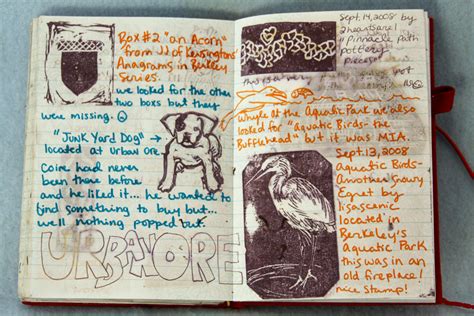 Box #2 "an Acorn"
from JJ of Kensingtons'
Anagrams in Berkley
Series.
we looked for the other
two boxs but they
were missing.
"Junk Yard Dog" →
located at Urban Ore
Coire had never
been there before
and he liked it... he wanted to
find something to buy but...
well nothing popped out.
URBANORE
Sept. 14, 2008 by
2heartsare1
"Pinnacle Path
pottery
pieces"
Whyle at the Aquatic Park we also
looked for "Aquatic Birds- the
Bufflehead" but it was MIA.
Sept. 13, 2008
Aquatic Birds-
Another Snowy
Egret by
lisascenic
located in
Berkeley's
aquatic Park
this was in an
old fireplace!
nice Stamp!